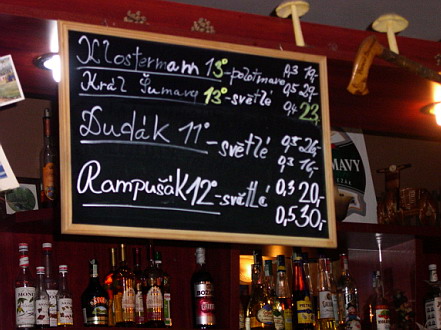 Klostermann 13° - polotmavé 0,3 19,-
Král Šumavy 13° - světlé 0,5 29,-
0,4 23,-
Dudák 11° - světlé 0,5 26,-
0,3 16,-
Rampušák 12° - světlá 0,3 20,-
0,5 30,-
MAVY
MONIN